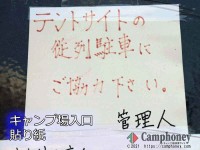 テントサイトの
従列駐車に
ご協力下さい。
管理人
キャンプ場入口
貼り紙
Camphoney